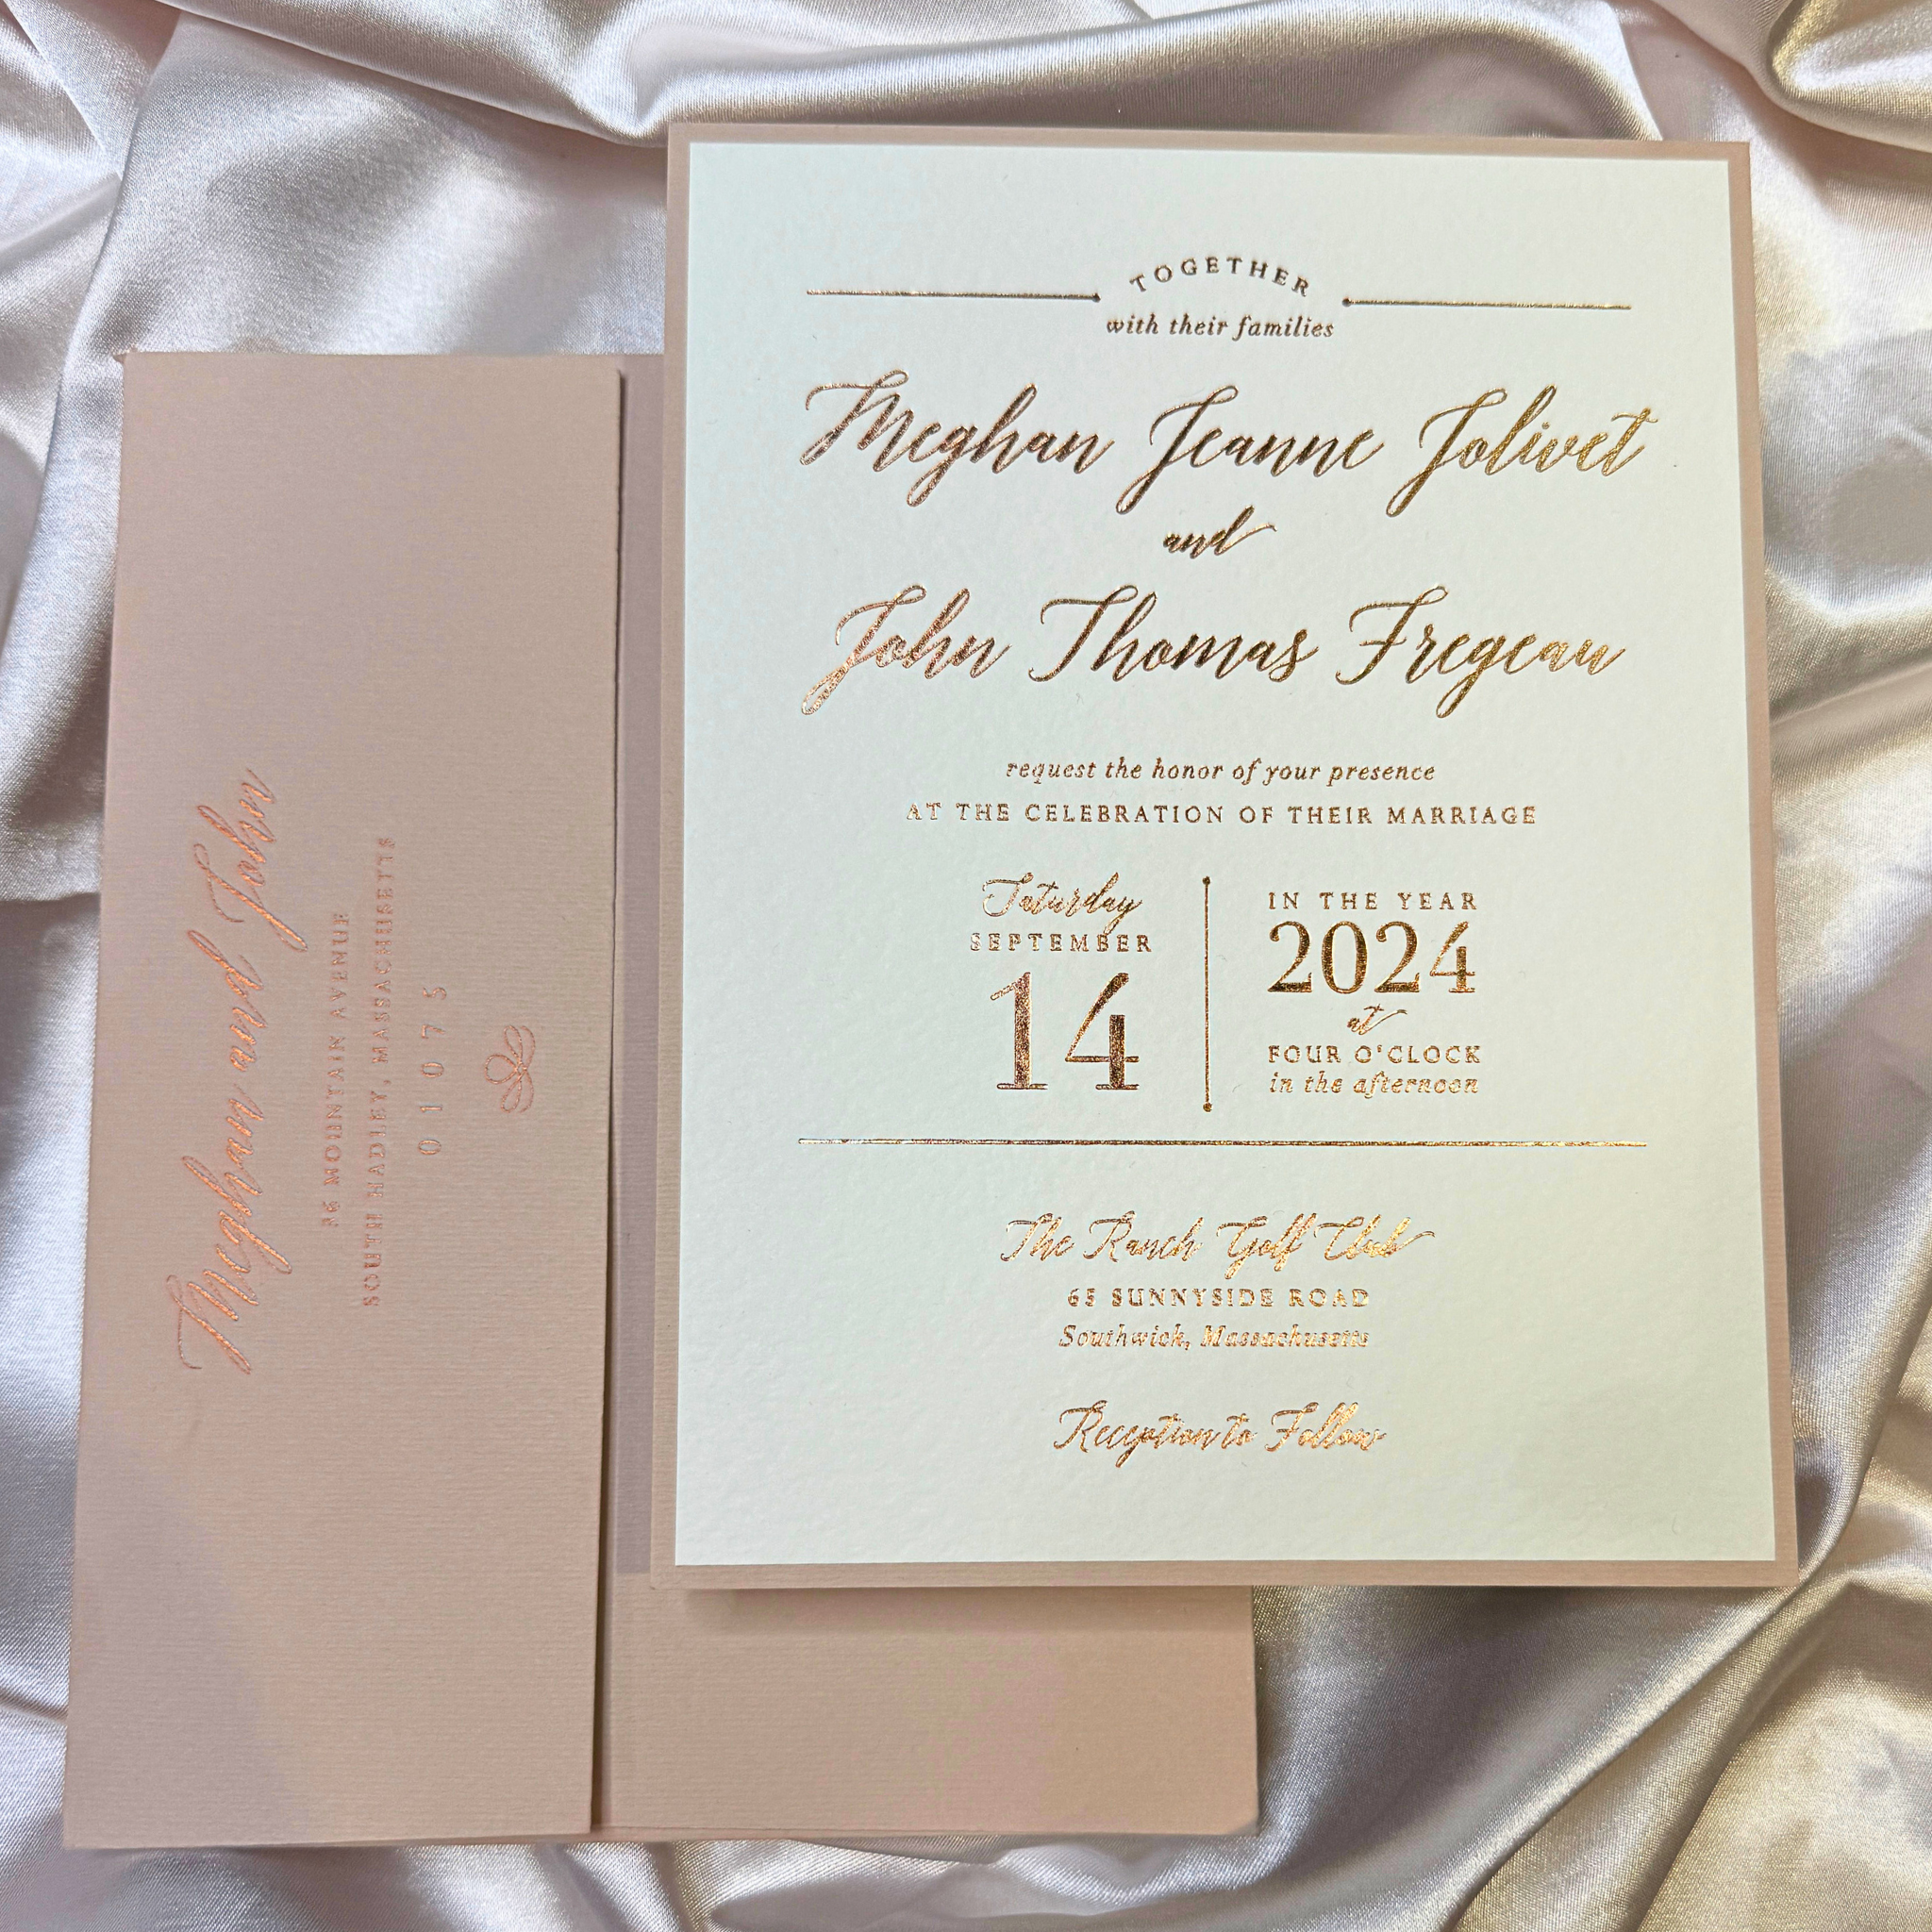 TOGETHER
with their families
Meghan Jeanne Jolivet
and
John Thomas Fregeau
request the honor of your presence
AT THE CELEBRATION OF THEIR MARRIAGE
Saturday
SEPTEMBER
14
IN THE YEAR
2024
at
FOUR O'CLOCK
in the afternoon
The Ranch Golf Club
65 SUNNYSIDE ROAD
Southwick, Massachusetts
Reception to Follow
Meghan and John
MOUNTAIN AVENUE
SOUTH HADLEY, MASSACHUSETTS
01075